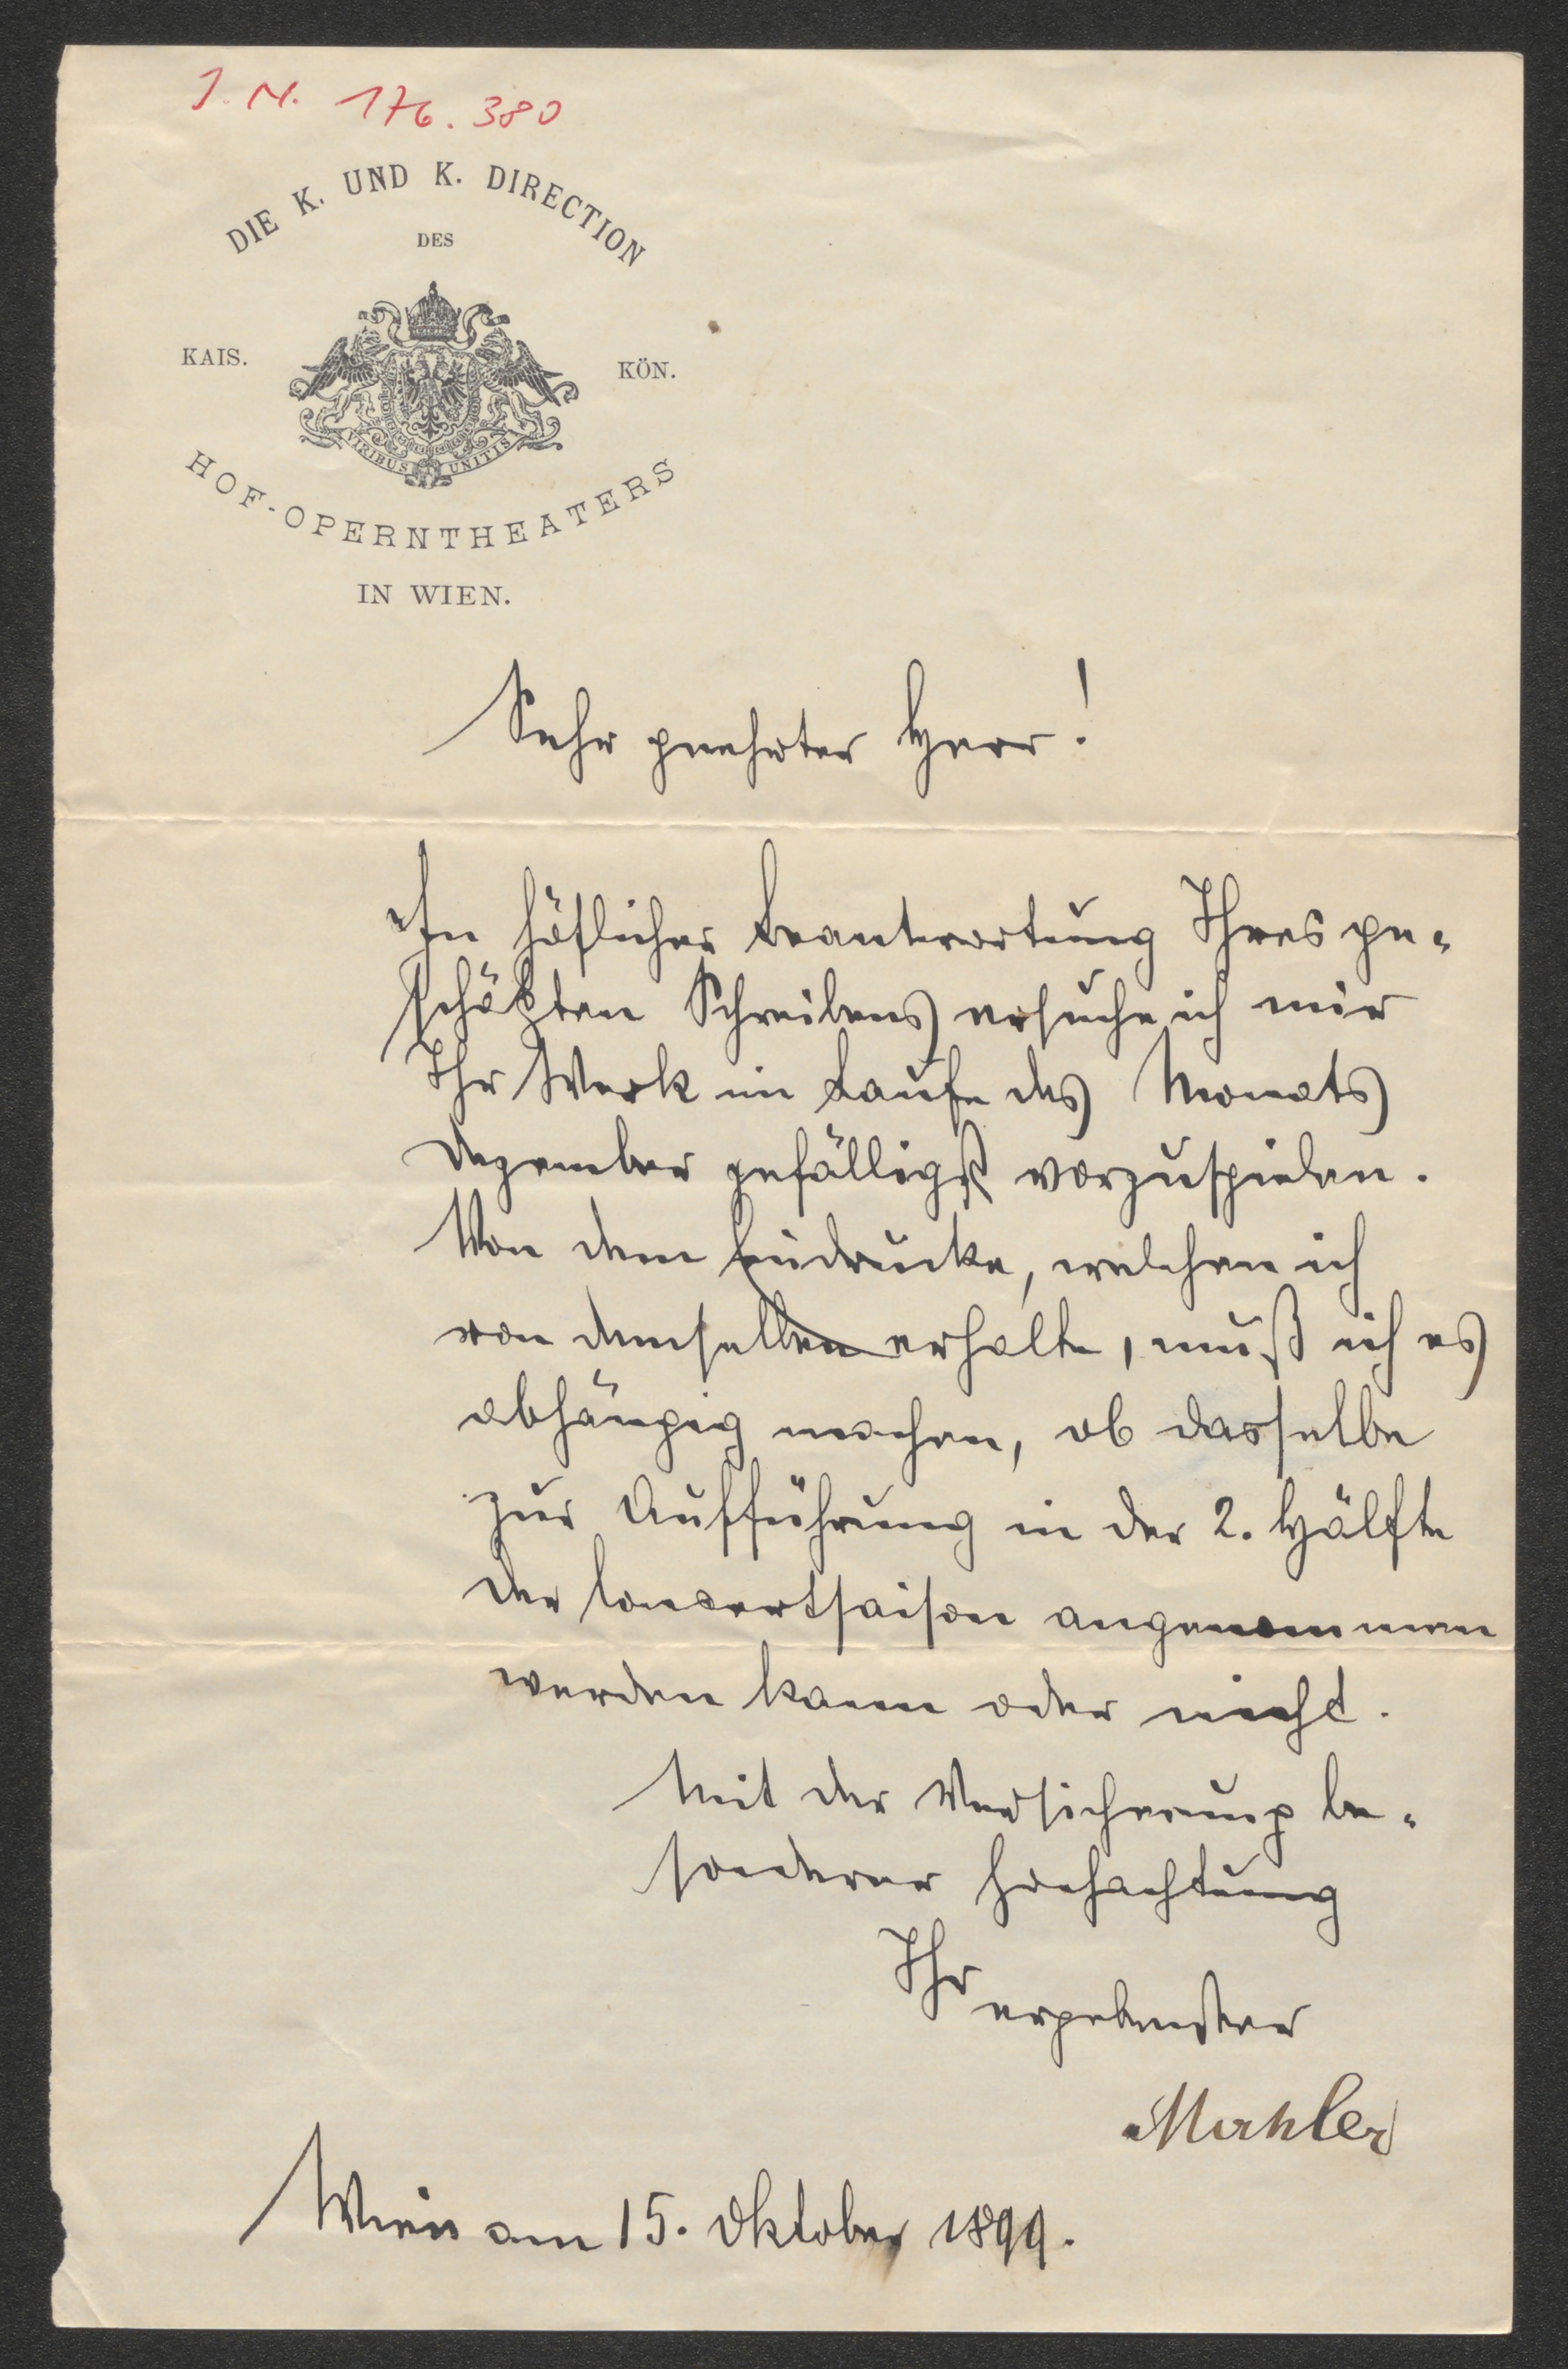 J. N. 176.380
DIE K. UND K. DIRECTION
DES
KAIS. KÖN.
VIRIBUS UNITIS
HOF-OPERNTHEATERS
IN WIEN.
Sehr geehrter Herr!
In höflicher Beantwortung Ihres ge-
schätzten Schreibens ersuche ich mir
Ihr Werk im Laufe des Monats
Dezember gefälligst vorzuspielen.
Von dem Eindrucke, welchen ich
von demselben erhalte, muß ich es
abhängig machen, ob dasselbe
zur Aufführung in der 2. Hälfte
der Concertsaison angenommen
werden kann oder nicht.
Mit der Versicherung be-
sonderer Hochachtung
Ihr
ergebenster
Mahler
Wien am 15. Oktober 1899.